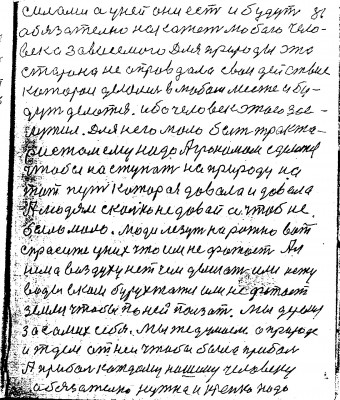 силами а у ней они есть и будут
обязательно накажет любого чело-
века зависемого Для природы это
сторона не оправдала свои действие
которои делались в любом месте и бу-
дут делатся. ибо человек этого зас-
лужил. Для него мало быть тракта-
ристом ему надо Агрономом сделатся
чтобы наступать на природу на
тот путь которая давала и давала
А людям сколько не давай а чтоб не
было мало. Люди лезут на рожно вот
спросите у них что им не хватает Ал
ими воздуху нет чем дышать или нету
воды в коем буружтоже им не хватает
земли чтобы по ней ползат. Мы думаем
за самих себя. Мы не думаем о природе
и ждем от неи чтобы была прибыл
А прибыл каждому нашому человеку
обязателно нужна и крепко надо